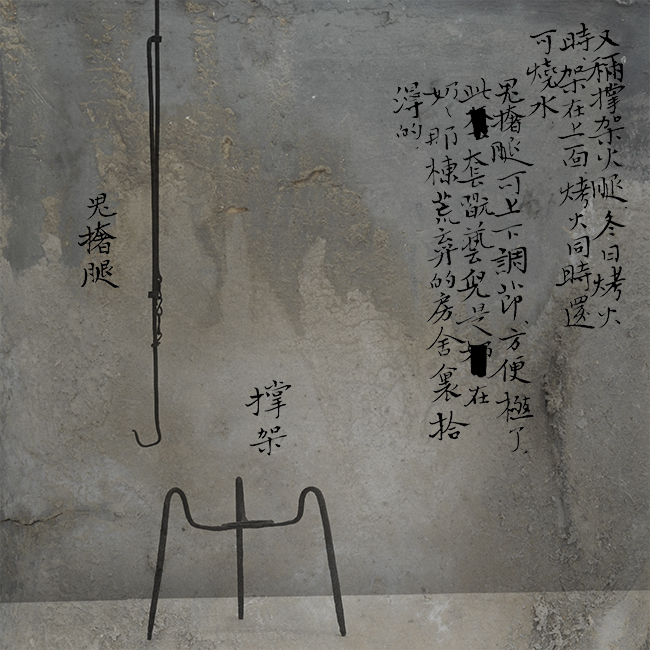 又稱撐架火腿冬日烤火
時架在上面烤火同時還
可燒水
鬼撦腿可上下調節方便極了
此套翫藝兒是在
奶〻那棟荒弃的房舍裏拾
得的
撐架
鬼撦腿